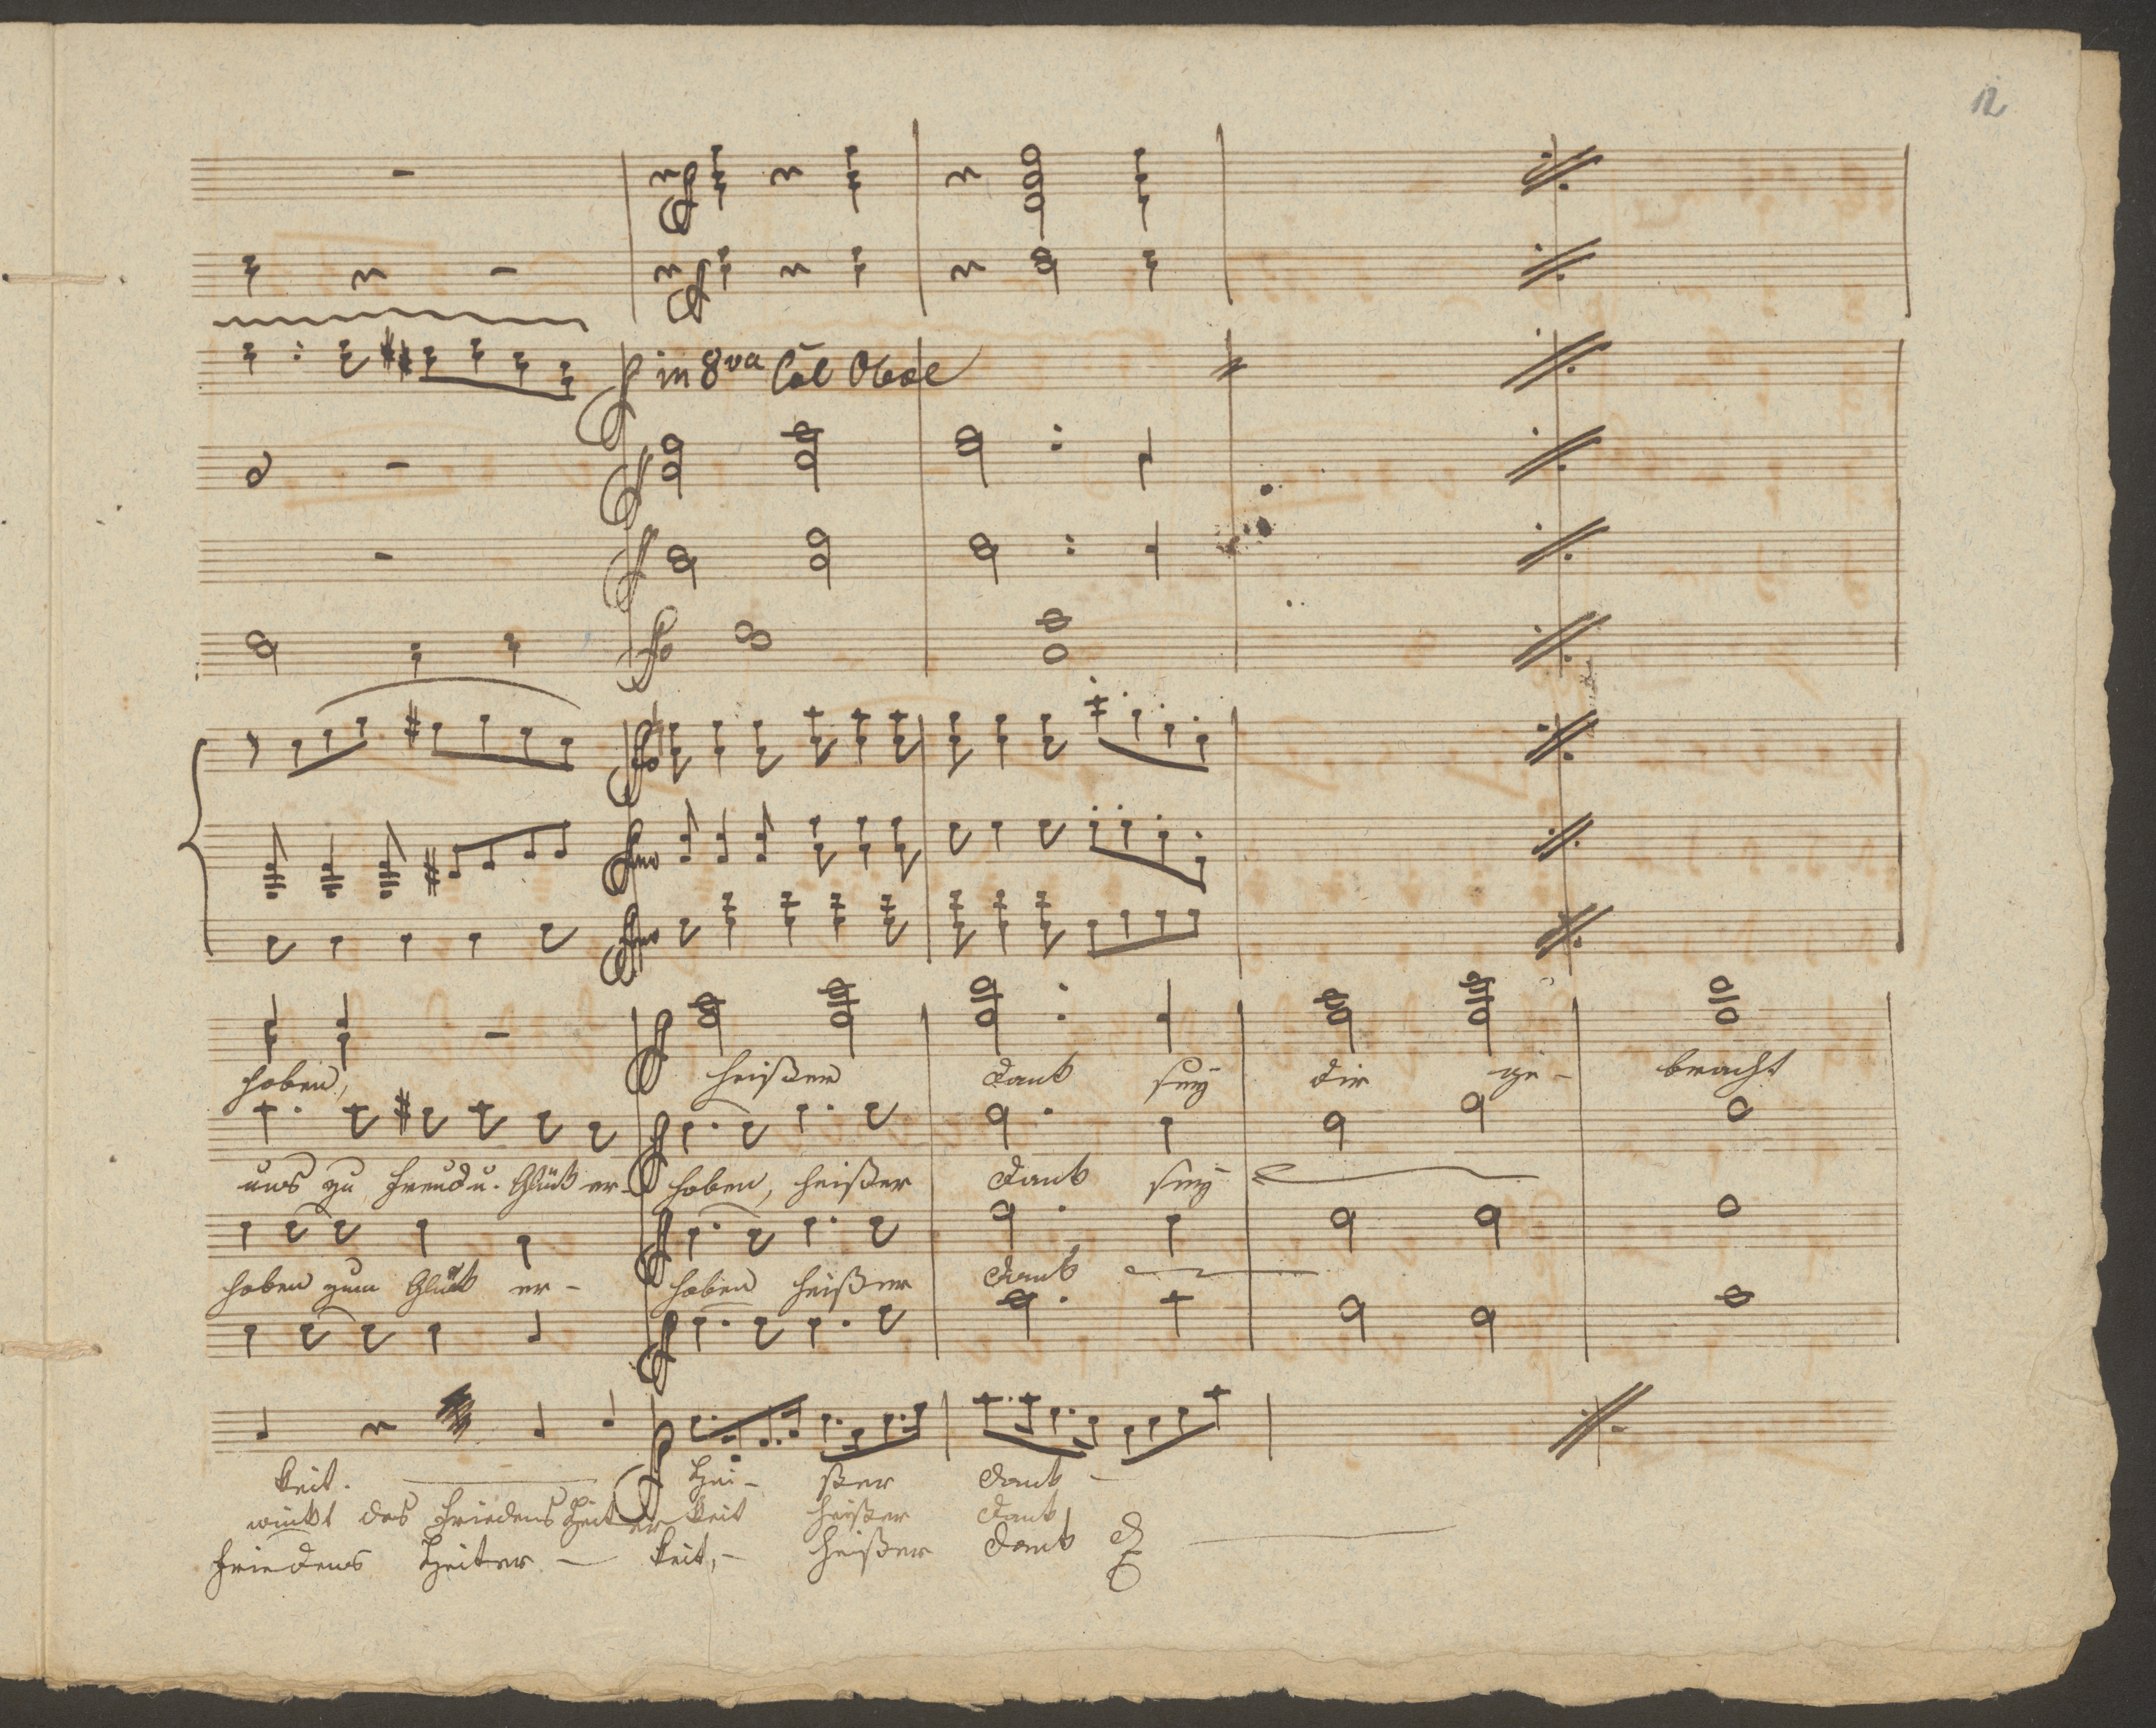 12
in 8va Col Oboe
hoben, heißer Dank sey dir ge- bracht
uns zu Freud u. Glück er- hoben, heißer Dank sey
hoben zum Glück er- hoben heißer Dank
keit. Hei- ßer Dank -
winkt des Friedens Heiter keit heißer Dank
Friedens Heiter - keit, - heißer Dank